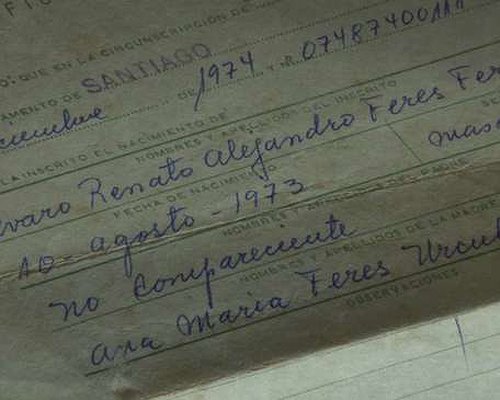 O: QUE EN LA CIRCUNSCRIPCIÓN DE
AMENTO DE SANTIAGO
DE 1974 Y R. 07487400
LA INSCRITO EL NACIMIENTO DE
NOMBRES Y APELLIDOS DEL INSCRITO
varo Renato Alejandro Feres Fer
FECHA DE NACIMIENTO
10 - agosto - 1973
masc
NOMBRES Y APELLIDOS DEL PADRE
no compareciente
NOMBRES Y APELLIDOS DE LA MADRE
Ana Maria Feres Urcu
OBSERVACIONES